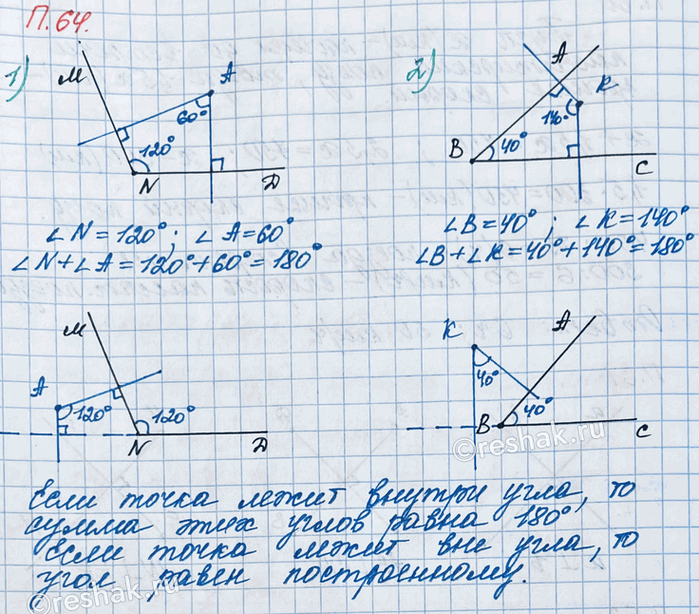 П.64.
1)
M
A
60°
120°
N
D
∠N=120°; ∠A=60°
∠N+∠A=120°+60°=180°
2)
A
K
140°
B
40°
C
∠B=40°; ∠K=140°
∠B+∠K=40°+140°=180°
M
A
120°
120°
N
D
K
A
40°
B
40°
C
©reshak.ru
Если точка лежит внутри угла, то
сумма этих углов равна 180°
Если точка лежит вне угла, то
угол равен построенному.
©reshak.ru